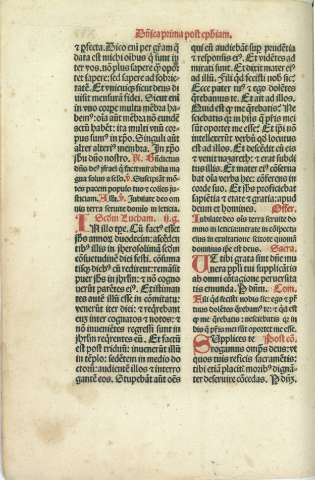 Dñica prima post ephiam.
et pfecta. Dico eni per gram q̃
data est michi oibus q̃ sunt in
ter vos. nõ plus sapere q̃ oportet
sapere: sed sapere ad sobrie
tatẽ. Et vnicuiqz sicut deus di
uisit mensurã fidei. Sicut eni
in vno corpe multa mẽbra ha
bemꝰ: oĩa aũt mẽbra nõ eundẽ
actũ habẽt: ita multi vnũ cor
pus sumꝰ in xp̃o. Singuli aũt
alter alteriꝰ mẽbra. In xp̃o
ihũ dño nostro. R̃. Bñdictus
dñs deꝰ israel q̃ facit mirabilia
magna solus a sclo. ℣. Suscipiãt mõ
tes pacem populo tuo et colles iu
sticiam. Alla. ℣. Iubilate deo om
nis terra seruite domino in leticia.
Scdm Lucham. ij. g.
IN illo tpe. Cũ factꝰ esset
ihs annoꝝ duodecim: ascedẽ
tibꝰ illis in iherosolimã scdm
cõsuetudinẽ diei festi. cõsuma
tisqz diebꝰ cũ redirent: remãsit
puer ihs in ihrlm: et nõ cogno
uerũt parẽtes eiꝰ. Existiman
tes autẽ illũ esse in comitatu:
venerũt iter diei: et reqrebant
eũ inter cognatos et notos: et
nõ inuẽiẽtes regressi sunt in
ihrlm reqrentes eũ. Et factũ
est post triduũ: inuenerũt illũ
in tẽplo: sedẽtem in medio do
ctoꝝ: audientẽ illos et interro
gantẽ eos. Stupebãt aũt oẽs
qui eũ audiebãt sup prudẽtia
et responsis eiꝰ. Et vidẽtes ad
mirati sunt. Et dixit mater eiꝰ
ad illũ. Fili qd fecisti nob sic?
Ecce pater tuꝰ et ego dolẽtes
q̃rebamꝰ te. Et ait ad illos.
Quid est q̃ me q̃rebatis? Ne
sciebatis: q̃ in hiis q̃ pr̃is mei
sũt oportet me esse? Et ip̃i nõ
intellexerũt verbũ qd locutus
est ad illos. Et descẽdit cũ eis
et venit nazareth: et erat subdi
tus illis. Et mater eiꝰ cõserua
bat oĩa verba hec: cõferens in
corde suo. Et ihs proficiebat
sapiẽtia et etate et gratia: apud
deum et homines. Offer.
Iubilate deo oĩs terra seruite do
mino in leticia: intrate in cõspectu
eius in exultatione: scitote quoniã
dominus ip̃e est deus. Secra.
Ut tibi grata sint dñe mu
nera ppl'i tui supplicãtis ab
omni cõtagione peruersita
tis emunda. P dñm. Com.
Fili qd fecisti nobis sic: ego et pr̃
tuus dolẽtes q̃rebamꝰ te: et qd est
q̃ me q̃rebatis: nesciebatis: q̃ in
his q̃ pr̃is mei sũt oportet me esse.
Supplices te Post cõ.
rogamus omp̃s deus: vt
quos tuis reficis sacramẽtis:
tibi etiã placitꝭ moribꝰ dignã
ter deseruire cõcedas. P dñm.